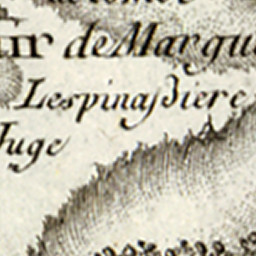 de Margu
Lespinassiere
Juge